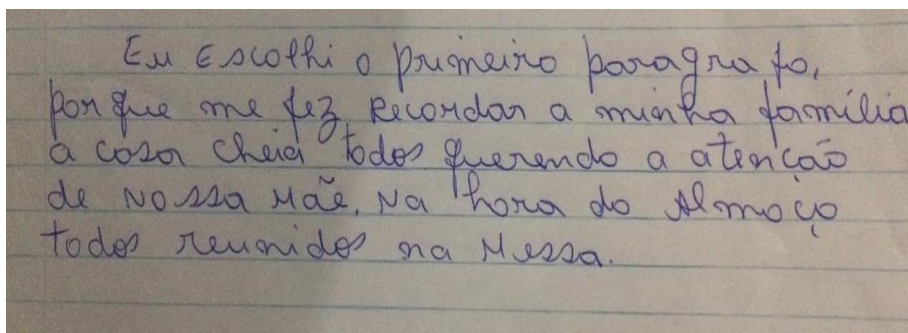 Eu Escolhi o primeiro paragra fo,
porque me fez Recordar a minha família
a casa cheia todos querendo a atenção
de Nossa Mãe, Na hora do Almoço
todos reunidos na Messa.